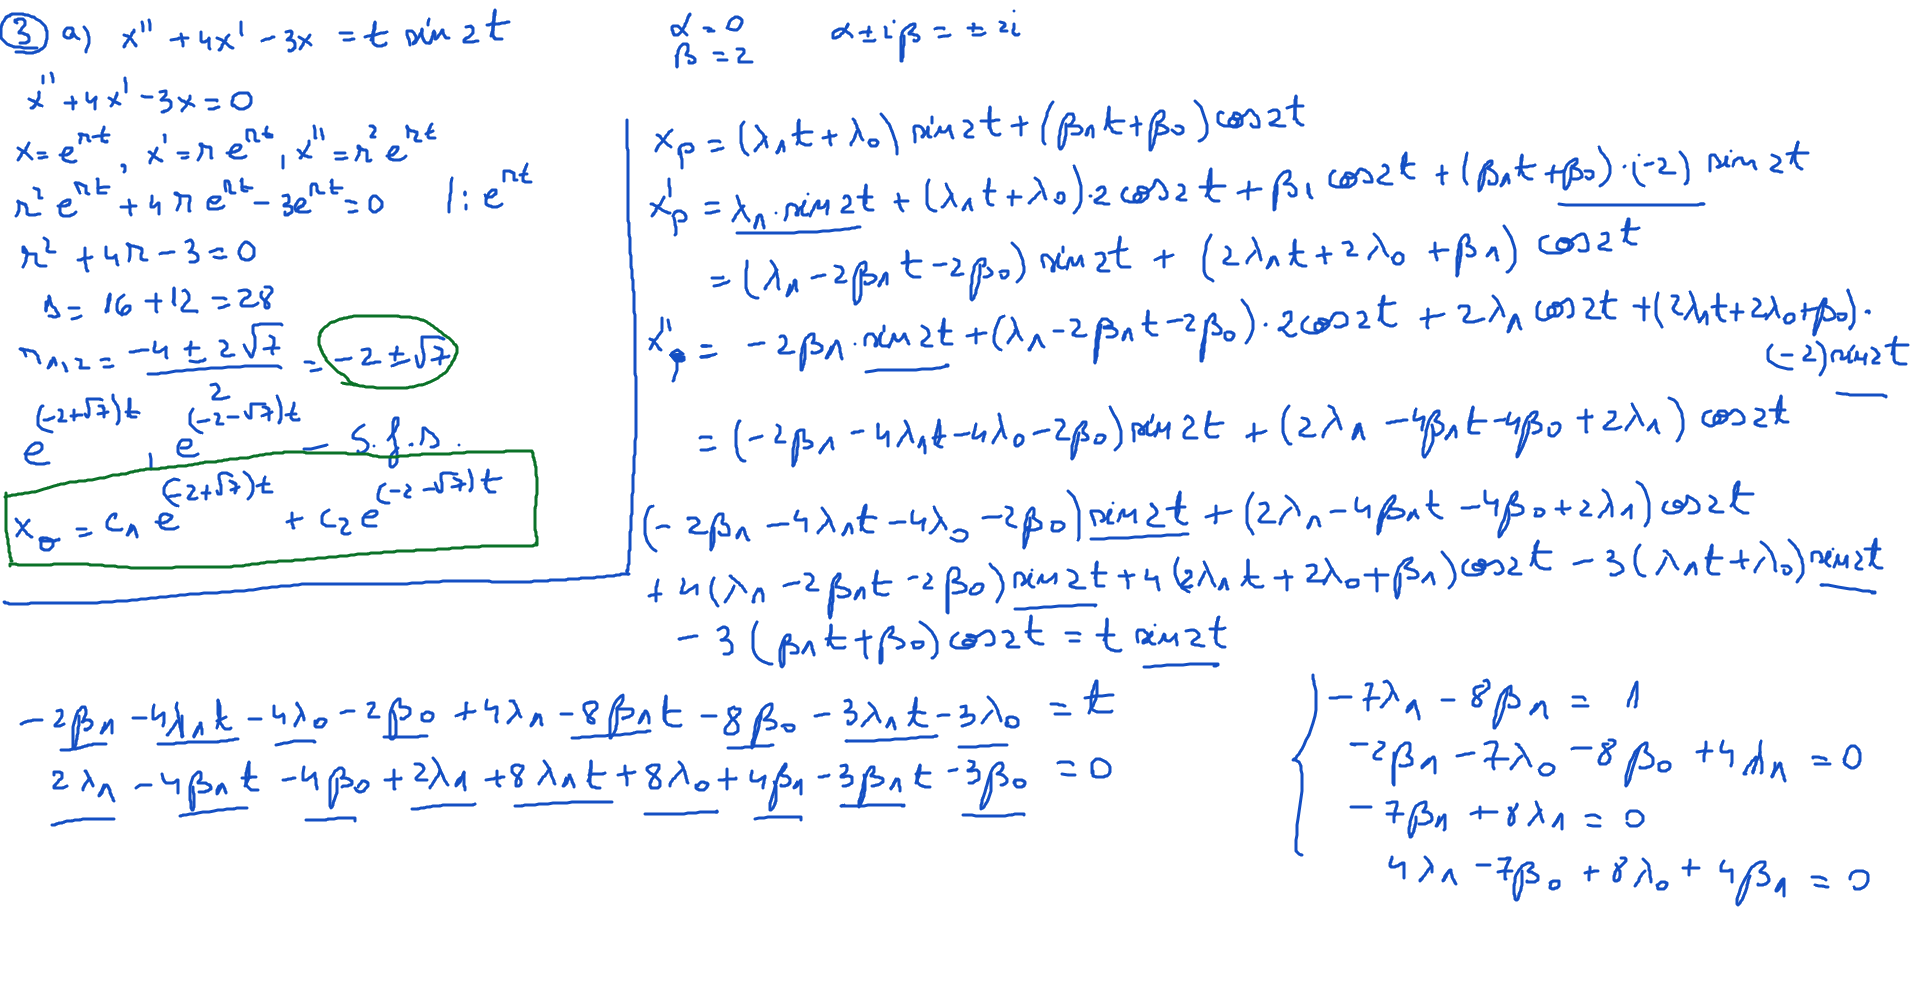 ③ a) x'' + 4x' - 3x = t sin 2t
x'' + 4x' - 3x = 0
x = e^{rt}, x' = r e^{rt}, x'' = r² e^{rt}
r² e^{rt} + 4 r e^{rt} - 3e^{rt} = 0 |: e^{rt}
r² + 4r - 3 = 0
Δ = 16 + 12 = 28
r₁,₂ = (-4 ± 2√7)/2 = -2 ± √7
e^{(-2+√7)t}, e^{(-2-√7)t} - s.f.s.
x₀ = c₁ e^{(-2+√7)t} + c₂ e^{(-2-√7)t}
α = 0
β = 2
α ± iβ = ± 2i
x_p = (λ₁t + λ₀) sin 2t + (β₁t + β₀) cos 2t
x'_p = λ₁ · sin 2t + (λ₁t + λ₀) · 2 cos 2t + β₁ cos 2t + (β₁t + β₀) · (-2) sin 2t
= (λ₁ - 2β₁t - 2β₀) sin 2t + (2λ₁t + 2λ₀ + β₁) cos 2t
x''_p = -2β₁ · sin 2t + (λ₁ - 2β₁t - 2β₀) · 2cos 2t + 2λ₁ cos 2t + (2λ₁t + 2λ₀ + β₀) ·
(-2) sin 2t
= (-2β₁ - 4λ₁t - 4λ₀ - 2β₀) sin 2t + (2λ₁ - 4β₁t - 4β₀ + 2λ₁) cos 2t
(-2β₁ - 4λ₁t - 4λ₀ - 2β₀) sin 2t + (2λ₁ - 4β₁t - 4β₀ + 2λ₁) cos 2t
+ 4(λ₁ - 2β₁t - 2β₀) sin 2t + 4(2λ₁t + 2λ₀ + β₁) cos 2t - 3(λ₁t + λ₀) sin 2t
- 3(β₁t + β₀) cos 2t = t sin 2t
-2β₁ - 4λ₁t - 4λ₀ - 2β₀ + 4λ₁ - 8β₁t - 8β₀ - 3λ₁t - 3λ₀ = t
2λ₁ - 4β₁t - 4β₀ + 2λ₁ + 8λ₁t + 8λ₀ + 4β₁ - 3β₁t - 3β₀ = 0
-7λ₁ - 8β₁ = 1
-2β₁ - 7λ₀ - 8β₀ + 4λ₁ = 0
-7β₁ + 8λ₁ = 0
4λ₁ - 7β₀ + 8λ₀ + 4β₁ = 0